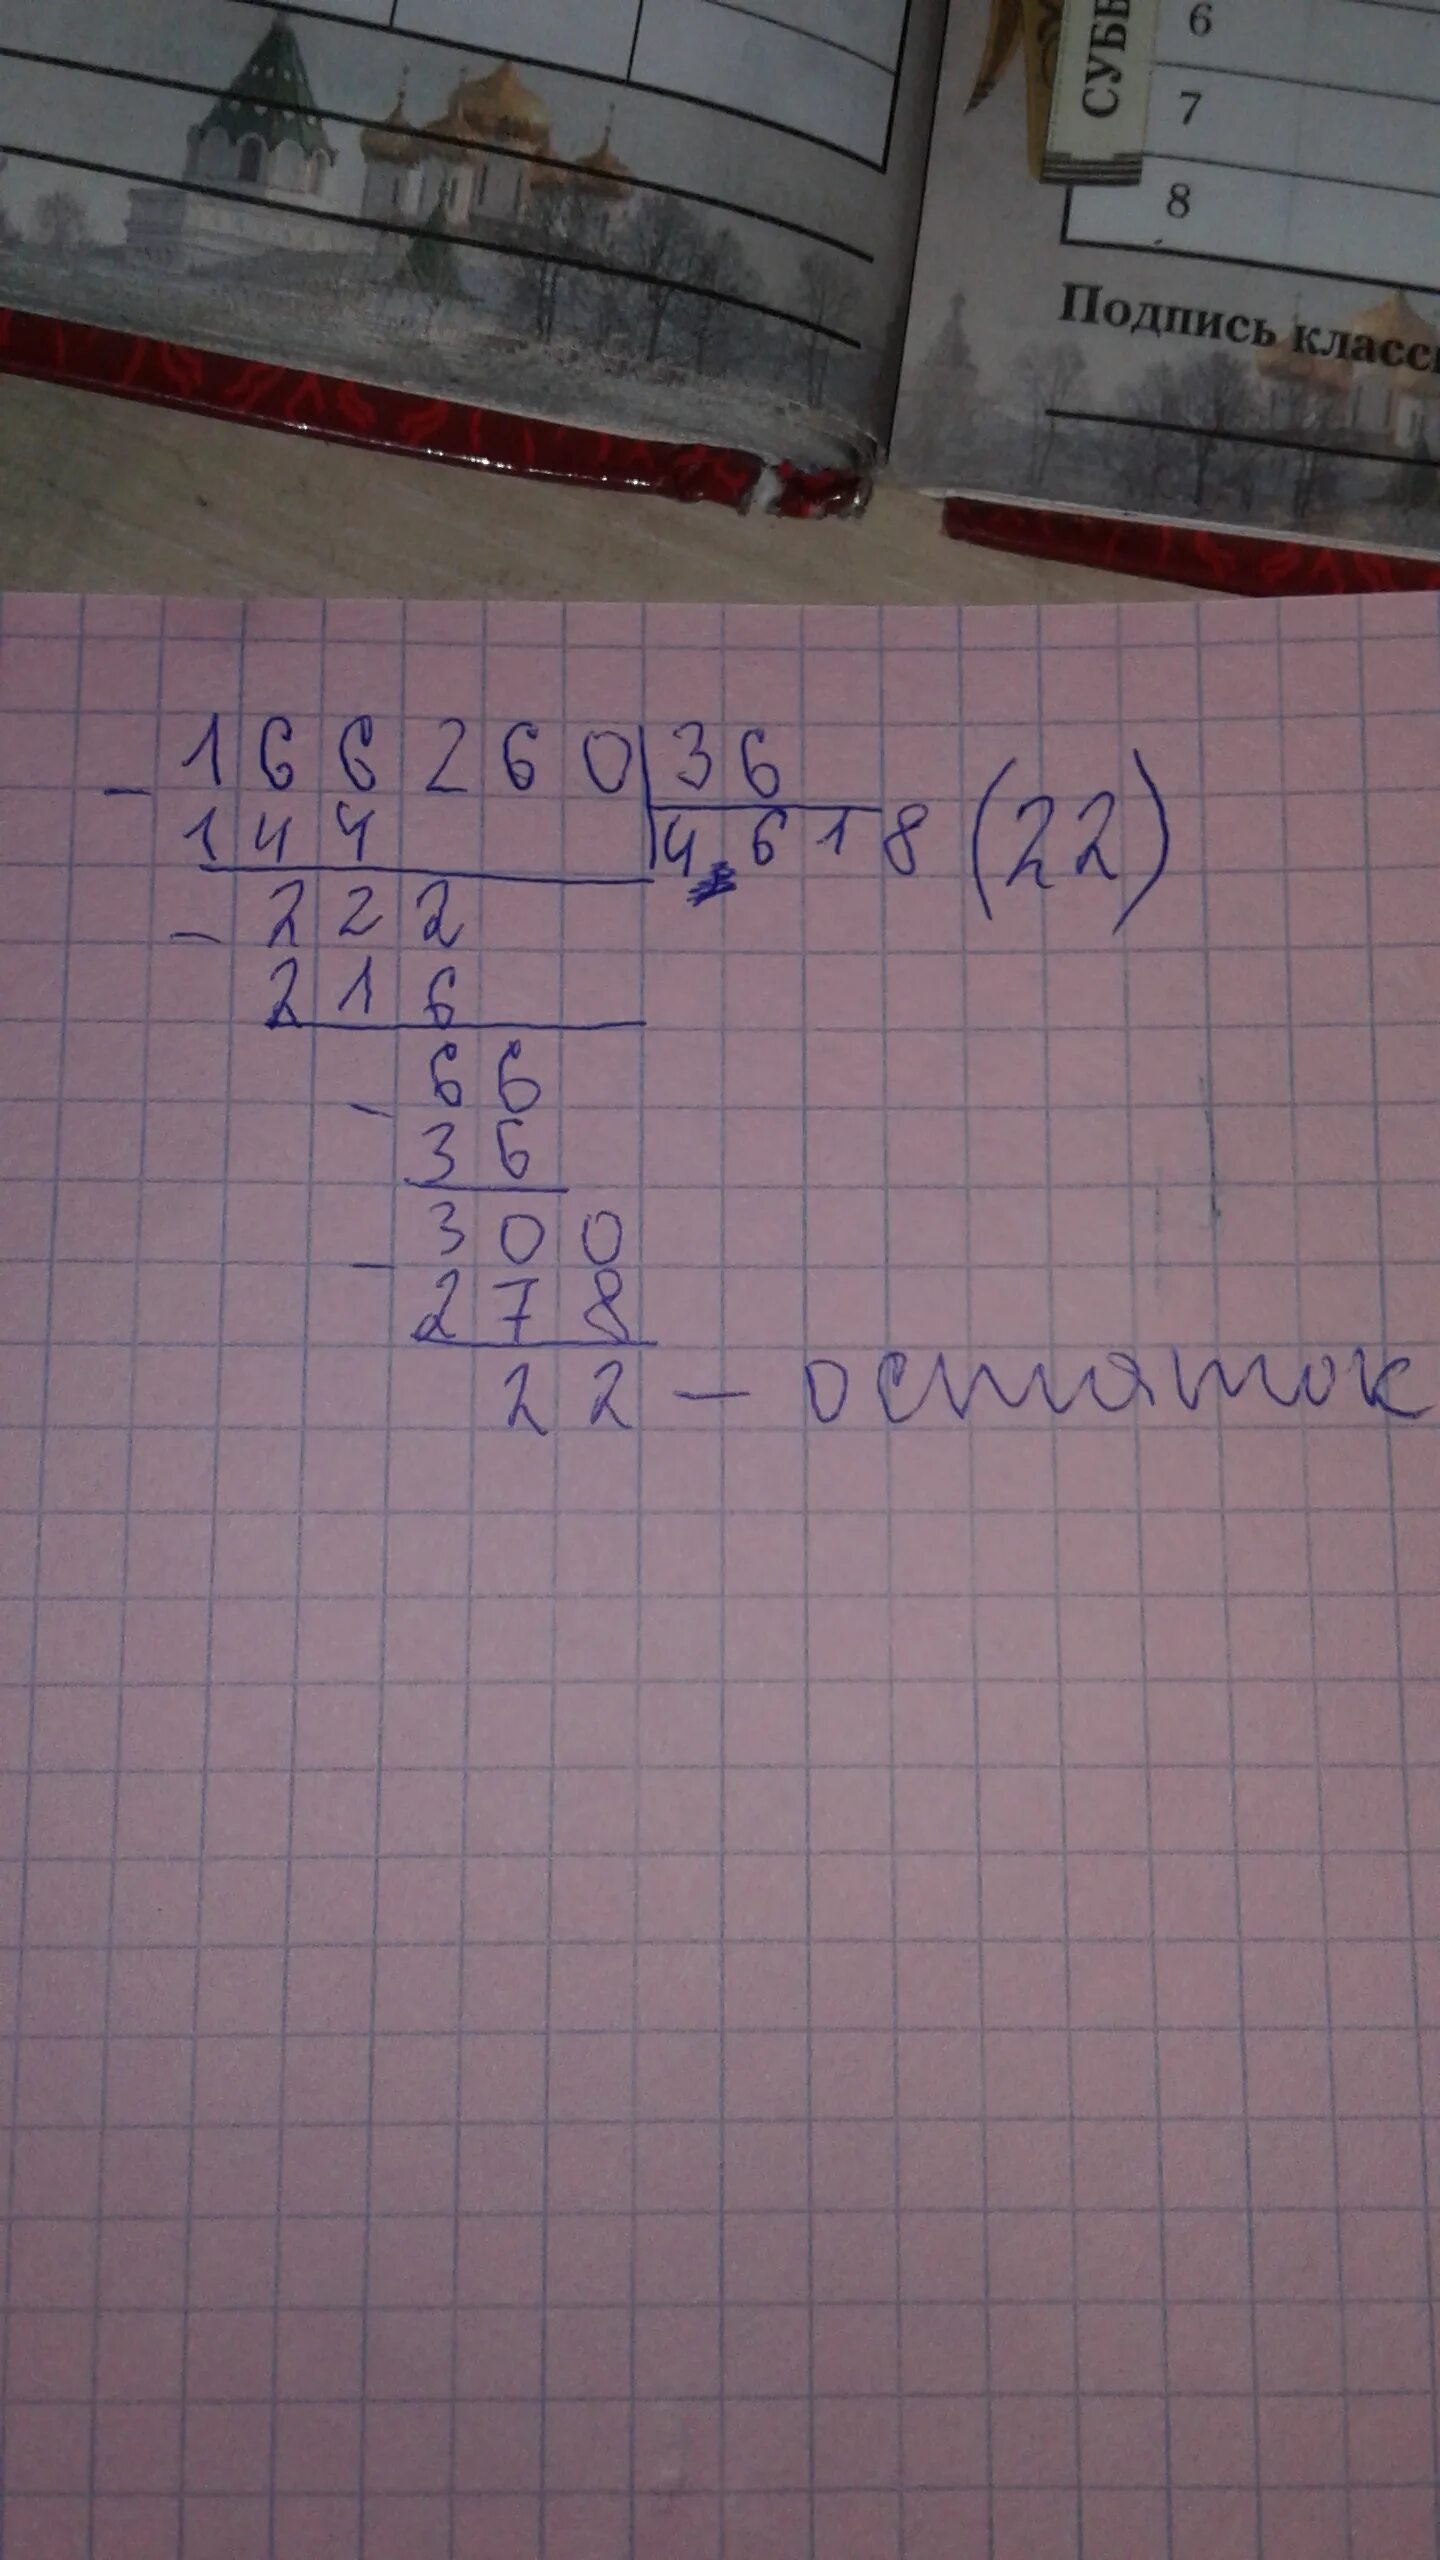 СУББ
6
7
8
Подпись класс
- 166260 36
144 4618 (22)
- 222
216
- 66
36
- 300
278
22 - остяток